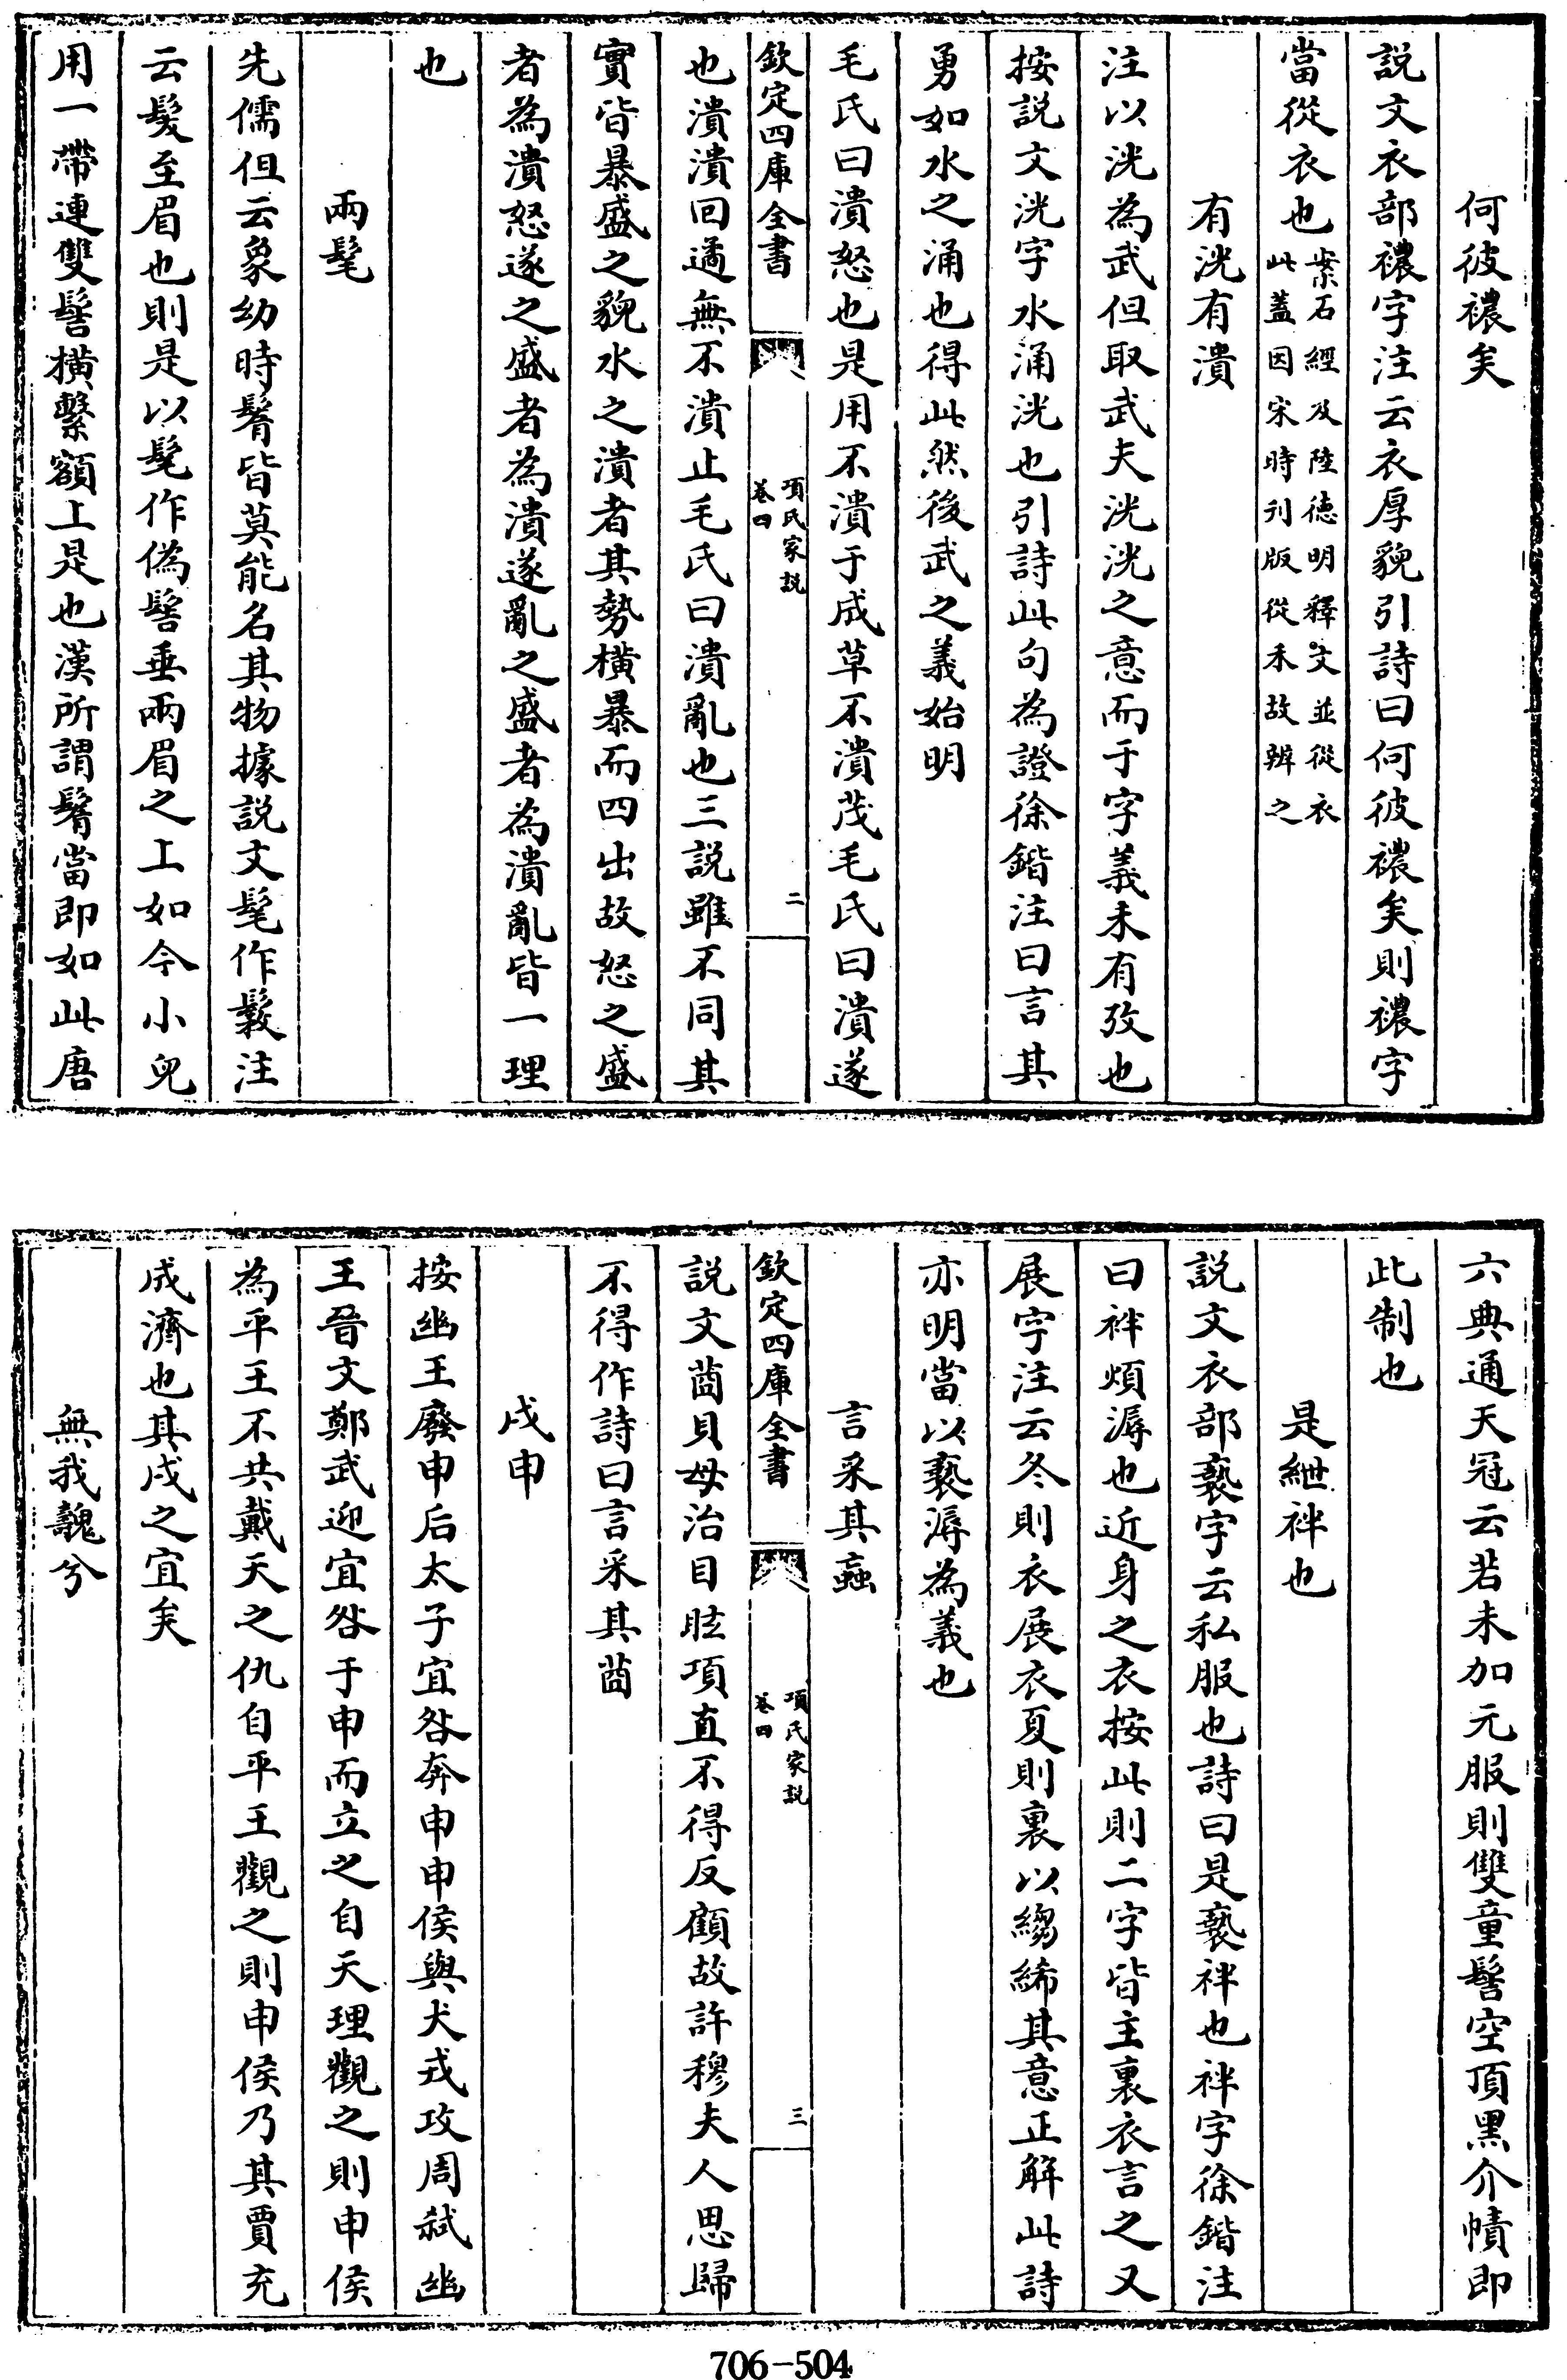 何彼襛矣
説文衣部襛字注云衣厚貌引詩曰何彼襛矣則襛字
當從衣也案石經及陸德明釋文並從衣此蓋因宋時刋版從禾故辨之
有洸有潰
注以洸為武但取武夫洸洸之意而于字義未有攷也
按説文洸字水涌洸也引詩此句為證徐鍇注曰言其
勇如水之涌也得此然後武之義始明
毛氏曰潰怒也是用不潰于成草不潰茂毛氏曰潰遂
欽定四庫全書 項氏家説 卷四 二
也潰潰回遹無不潰止毛氏曰潰亂也三説雖不同其
實皆暴盛之貌水之潰者其勢橫暴而四出故怒之盛
者為潰怒遂之盛者為潰遂亂之盛者為潰亂皆一理
也
兩髦
先儒但云象幼時鬌皆莫能名其物據説文髦作髳注
云髮至眉也則是以髦作偽髻垂兩眉之上如今小兒
用一帶連雙髻橫繫額上是也漢所謂鬌當即如此唐
六典通天冠云若未加元服則雙童髻空頂黑介幘即
此制也
是紲袢也
説文衣部褻字云私服也詩曰是褻袢也袢字徐鍇注
曰袢煩溽也近身之衣按此則二字皆主裏衣言之又
展字注云冬則衣展衣夏則裏以縐絺其意正解此詩
亦明當以褻溽為義也
言采其蝱
欽定四庫全書 項氏家説 卷四 三
説文莔貝母治目眩項直不得反顧故許穆夫人思歸
不得作詩曰言采其莔
戍申
按幽王廢申后太子宜咎奔申申侯與犬戎攻周弑幽
王晉文鄭武迎宜咎于申而立之自天理觀之則申侯
為平王不共戴天之仇自平王觀之則申侯乃其賈充
成濟也其戍之宜矣
無我魗兮
706-504